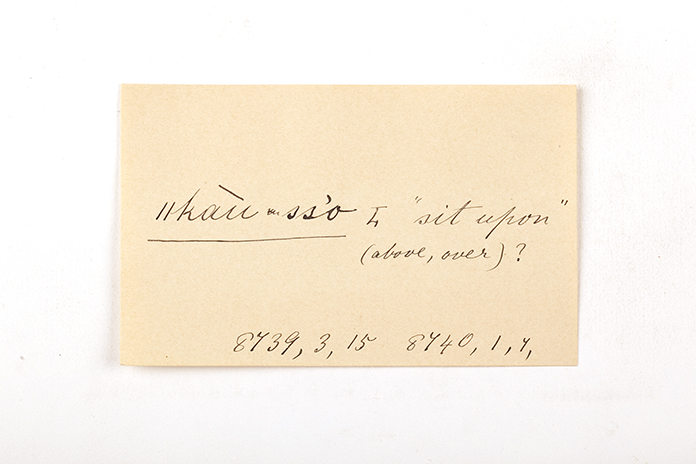 ǁkàu ss'o "sit upon"
(above, over)?
8739, 3, 15 8740, 1, 7,